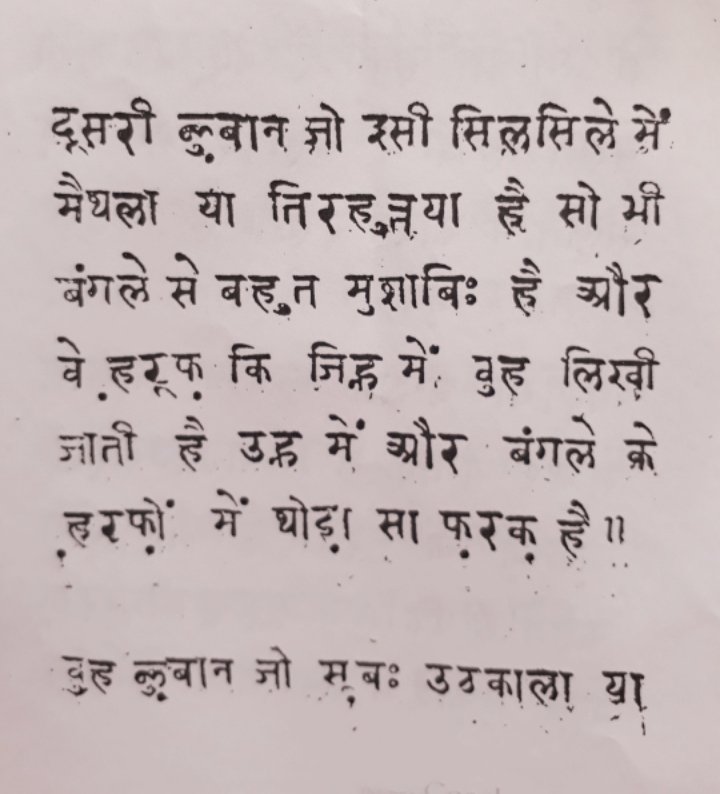 दूसरी ज़ुबान जो इसी सिलसिले में
मैथला या तिरहुतया है सो भी
बंगले से बहुत मुशाबिः है और
वे ह़रूफ़ कि जिन्ह में वुह लिखी
जाती है उन्ह में और बंगले के
ह़रफ़ों में थोड़ा सा फ़रक़ है ॥
वुह ज़ुबान जो सूबः उठकाला या